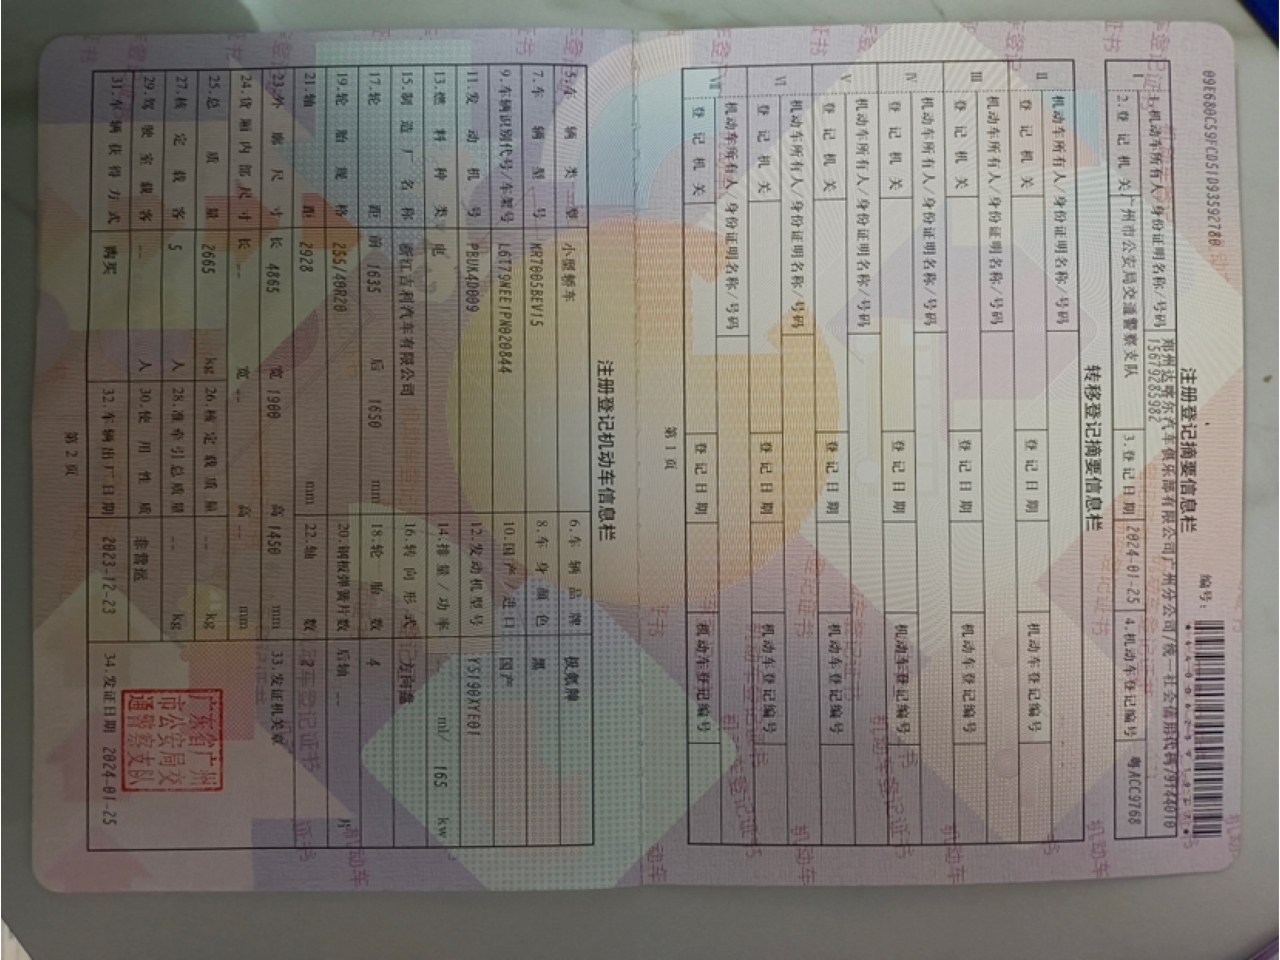 09E680C59FCD51D93592780
编号:
注册登记摘要信息栏
I 1.机动车所有人/身份证明名称/号码 郑州达喀尔汽车俱乐部有限公司广州分公司/统一社会信用代码/91440101567928598Z
2.登记机关 广州市公安局交通警察支队 3.登记日期 2024-01-25 4.机动车登记编号 粤ACC9768
转移登记摘要信息栏
II 机动车所有人/身份证明名称/号码
登记机关 登记日期 机动车登记编号
III 机动车所有人/身份证明名称/号码
登记机关 登记日期 机动车登记编号
IV 机动车所有人/身份证明名称/号码
登记机关 登记日期 机动车登记编号
V 机动车所有人/身份证明名称/号码
登记机关 登记日期 机动车登记编号
VI 机动车所有人/身份证明名称/号码
登记机关 登记日期 机动车登记编号
VII 机动车所有人/身份证明名称/号码
登记机关 登记日期 机动车登记编号
第1页
注册登记机动车信息栏
5.车辆类型 小型轿车 6.车辆品牌 极氪牌
7.车辆型号 MR7005BEV15 8.车身颜色 黑
9.车辆识别代号/车架号 L6T79NEE1PN020844 10.国产/进口 国产
11.发动机号 PBUK4D009 12.发动机型号 YS190XYE01
13.燃料种类 电 14.排量/功率 ml/ 165 kw
15.制造厂名称 浙江吉利汽车有限公司 16.转向形式 方向盘
17.轮距 前 1635 后 1650 mm 18.轮胎数 4
19.轮胎规格 255/40R20 20.钢板弹簧片数 后轴 -- 片
21.轴距 2928 mm 22.轴数 2
23.外廓尺寸 长 4865 宽 1900 高 1450 mm 33.发证机关章
24.货厢内部尺寸 长 -- 宽 -- 高 -- mm
25.总质量 2665 kg 26.核定载质量 -- kg
27.核定载客 5 人 28.准牵引总质量 -- kg
29.驾驶室载客 -- 人 30.使用性质 非营运
31.车辆获得方式 购买 32.车辆出厂日期 2023-12-23 34.发证日期 2024-01-25
广东省广州市公安局交通警察支队
第2页